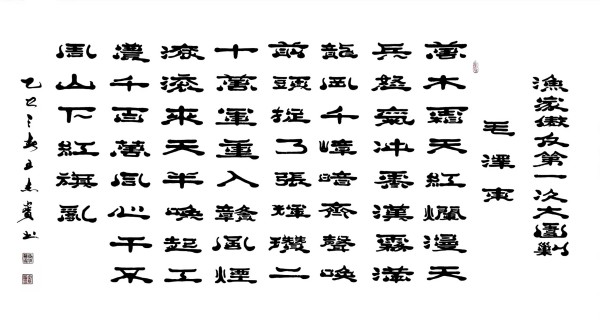 漁家傲反第一次大圍剿
毛澤東
萬木霜天紅爛漫天
兵怒氣沖霄漢霧滿
龍岡千嶂暗齊聲喚
前頭捉了張輝瓚二
十萬軍重入贛風煙
滾滾來天半喚起工
農千百萬同心干不
周山下紅旗亂
乙巳之春王志書